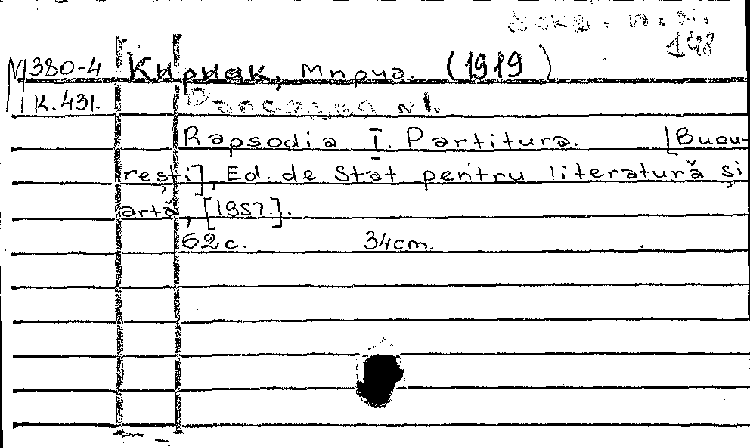 148
М 380-4 Кириак, Мирча. (1919)
К. 431. Рапсодия №1.
Rapsodia I. Partitura. [Bucu-
rești], Ed. de Stat pentru literatură și
artă, [1957].
62 c. 34cm.